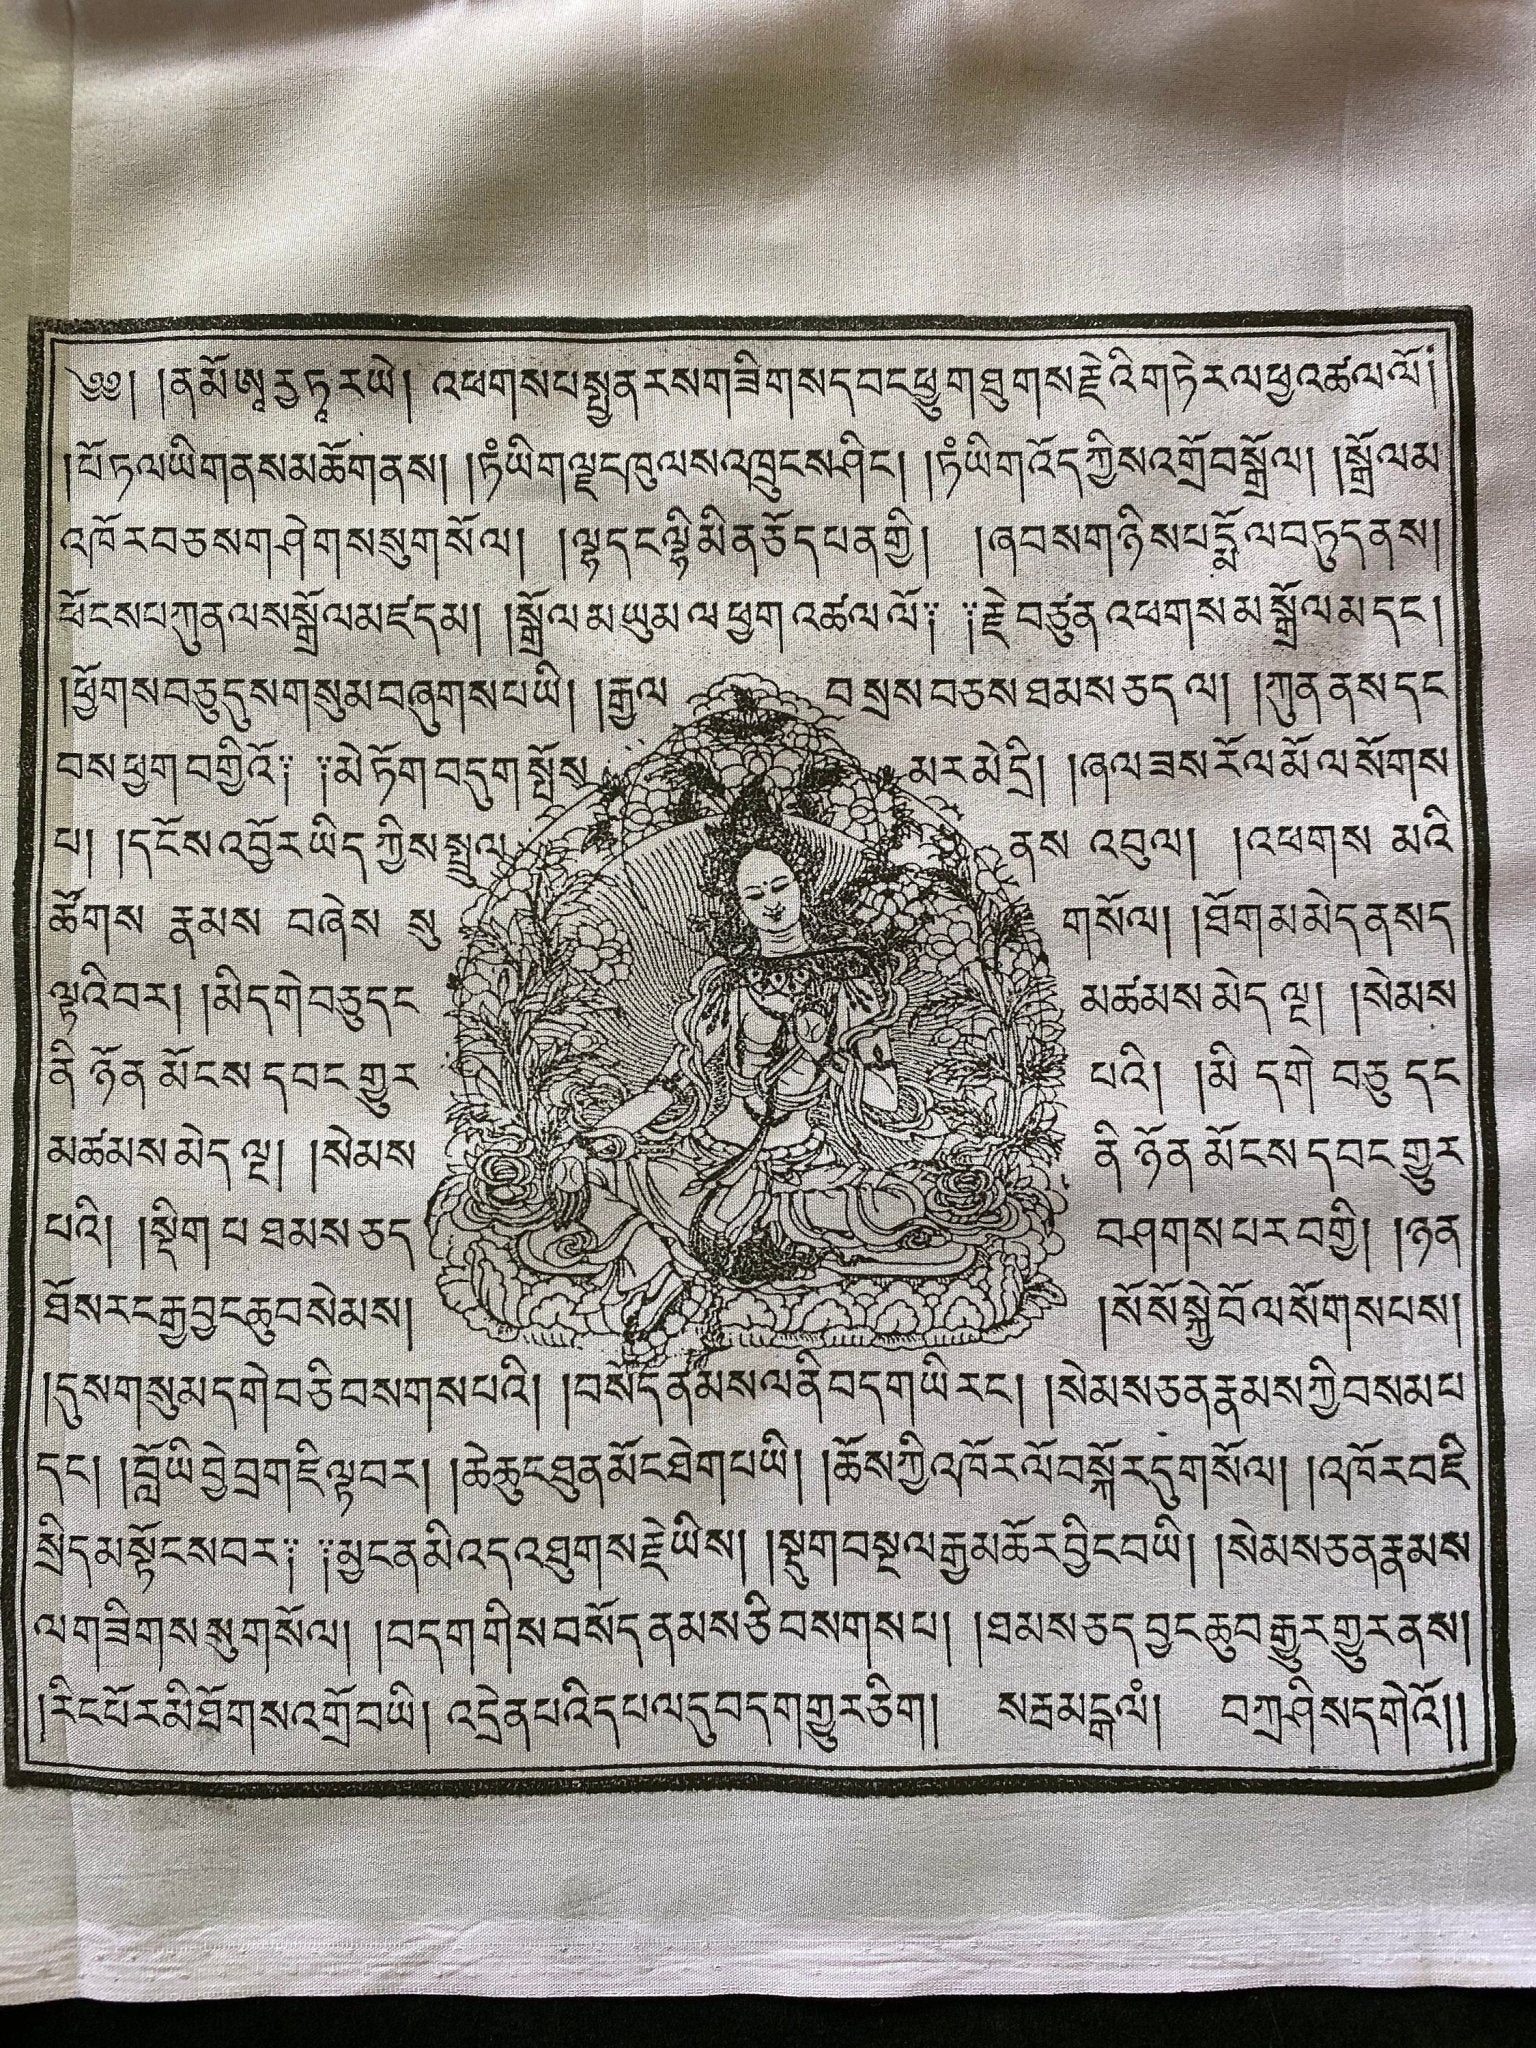 ༄༅། །ན་མོ་ཨཱརྱ་ཏཱ་ར་ཡེ། འཕགས་པ་སྤྱན་རས་གཟིགས་དབང་ཕྱུག་ཐུགས་རྗེའི་གཏེར་ལ་ཕྱག་འཚལ་ལོ།
།པོ་ཏ་ལ་ཡི་གནས་མཆོག་ནས། །ཏཾ་ཡིག་ལྗང་ཁུ་ལས་འཁྲུངས་ཤིང། །ཏཾ་ཡིག་འོད་ཀྱིས་འགྲོ་བ་སྒྲོལ། །སྒྲོལ་མ
འཁོར་བཅས་གཤེགས་སུ་གསོལ། །ལྷ་དང་ལྷ་མིན་ཅོད་པན་གྱི། །ཞབས་གཉིས་པདྨོ་ལ་བཏུད་ནས།
ཕོངས་པ་ཀུན་ལས་སྒྲོལ་མཛད་མ། །སྒྲོལ་མ་ཡུམ་ལ་ཕྱག་འཚལ་ལོ༔ ༔རྗེ་བཙུན་འཕགས་མ་སྒྲོལ་མ་དང།
།ཕྱོགས་བཅུ་དུས་གསུམ་བཞུགས་པ་ཡི། །རྒྱལ བ་སྲས་བཅས་ཐམས་ཅད་ལ། །ཀུན་ནས་དང
བས་ཕྱག་བགྱིའོ༔ ༔མེ་ཏོག་བདུག་སྤོས མར་མེ་དྲི། །ཞལ་ཟས་རོལ་མོ་ལ་སོགས
པ། །དངོས་འབྱོར་ཡིད་ཀྱིས་སྤྲུལ ནས་འབུལ། །འཕགས་མའི
ཚོགས་རྣམས་བཞེས་སུ གསོལ། །ཐོག་མ་མེད་ནས་ད
ལྟའི་བར། །མི་དགེ་བཅུ་དང མཚམས་མེད་ལྔ། །སེམས
ནི་ཉོན་མོངས་དབང་གྱུར པའི། །མི་དགེ་བཅུ་དང
མཚམས་མེད་ལྔ། །སེམས ནི་ཉོན་མོངས་དབང་གྱུར
པའི། །སྡིག་པ་ཐམས་ཅད བཤགས་པར་བགྱི། །ཉན
ཐོས་རང་རྒྱ་བྱང་ཆུབ་སེམས། །སོ་སོ་སྐྱེ་བོ་ལ་སོགས་པས།
།དུས་གསུམ་དགེ་བ་ཅི་བསགས་པའི། །བསོད་ནམས་ལ་ནི་བདག་ཡི་རང། །སེམས་ཅན་རྣམས་ཀྱི་བསམ་པ
དང། །བློ་ཡི་བྱེ་བྲག་ཇི་ལྟ་བར། །ཆེ་ཆུང་ཐུན་མོང་ཐེག་པ་ཡི། །ཆོས་ཀྱི་འཁོར་ལོ་བསྐོར་དུ་གསོལ། །འཁོར་བ་ཇི
སྲིད་མ་སྟོངས་བར༔ ༔མྱ་ངན་མི་འདའ་ཐུགས་རྗེ་ཡིས། །སྡུག་བསྔལ་རྒྱ་མཚོར་བྱིང་བ་ཡི། །སེམས་ཅན་རྣམས
ལ་གཟིགས་སུ་གསོལ། །བདག་གིས་བསོད་ནམས་ཅི་བསགས་པ། །ཐམས་ཅད་བྱང་ཆུབ་རྒྱུར་གྱུར་ནས།
།རིང་པོར་མི་ཐོགས་འགྲོ་བ་ཡི། འདྲེན་པའི་དཔལ་དུ་བདག་གྱུར་ཅིག། སརྦ་མངྒ་ལཾ། བཀྲ་ཤིས་དགེའོ།།